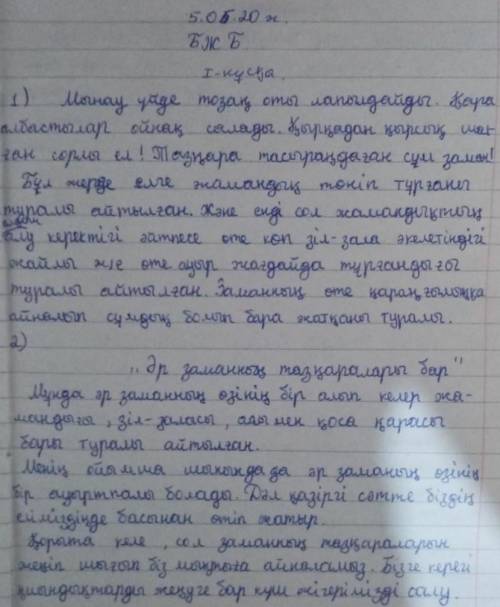 5.05.20 ж.
БЖБ
I-нұсқа.
1) Мынау үйде тозақ оты лапылдайды. Қара
албастылар ойнақ салады. Қырқадан қырсық шал-
ған сорлы ел! Тазқара тасыраңдаған сұм заман!
Бұл жерде елге жамандық төніп тұрғаны
туралы айтылған. Және енді сол жамандықтың
алдын
алу керектігі әйтпесе өте көп зіл-зала әкелетіндігі
жайлы және өте ауыр жағдайда тұрғандығы
туралы айтылған. Заманның өте қараңғылыққа
айналып сұмдық болып бара жатқаны туралы.
2)
„Әр заманның тазқаралары бар"
Мұнда әр заманның өзінің бір алып келер жа-
мандығы, зіл-заласы, қоса қарасы
бары туралы айтылған.
Менің ойымша шынында да әр заманың өзінің
бір ауыртпалы болады. Дәл қазіргі сәтте біздің
еліміздінде басынан өтіп жатыр.
Қорыта келе, сол заманның тазқараларын
жеңіп шығып біз мықтыға айналамыз. Бізге керегі
қиындықтарды жеңуге бар күш жігерімізді салу.